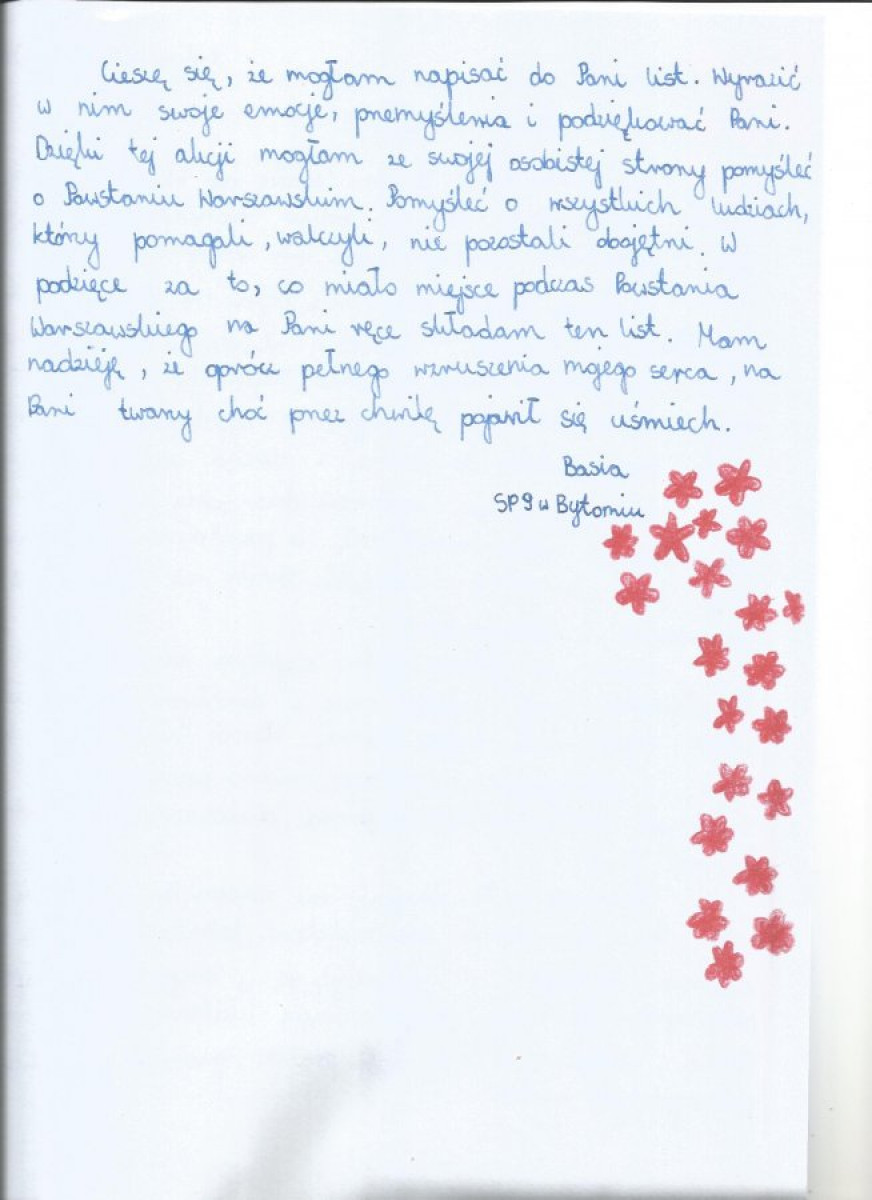 Cieszę się, że mogłam napisać do Pani list. Wyrazić
w nim swoje emocje, przemyślenia i podziękować Pani.
Dzięki tej akcji mogłam ze swojej osobistej strony pomyśleć
o Powstaniu Warszawskim. Pomyśleć o wszystkich ludziach,
którzy pomagali, walczyli, nie pozostali obojętni. W
podzięce za to, co miało miejsce podczas Powstania
Warszawskiego na Pani ręce składam ten list. Mam
nadzieję, że oprócz pełnego wzruszenia mojego serca, na
Pani twarzy choć przez chwilę pojawił się uśmiech.
Basia
SP9 w Bytomiu